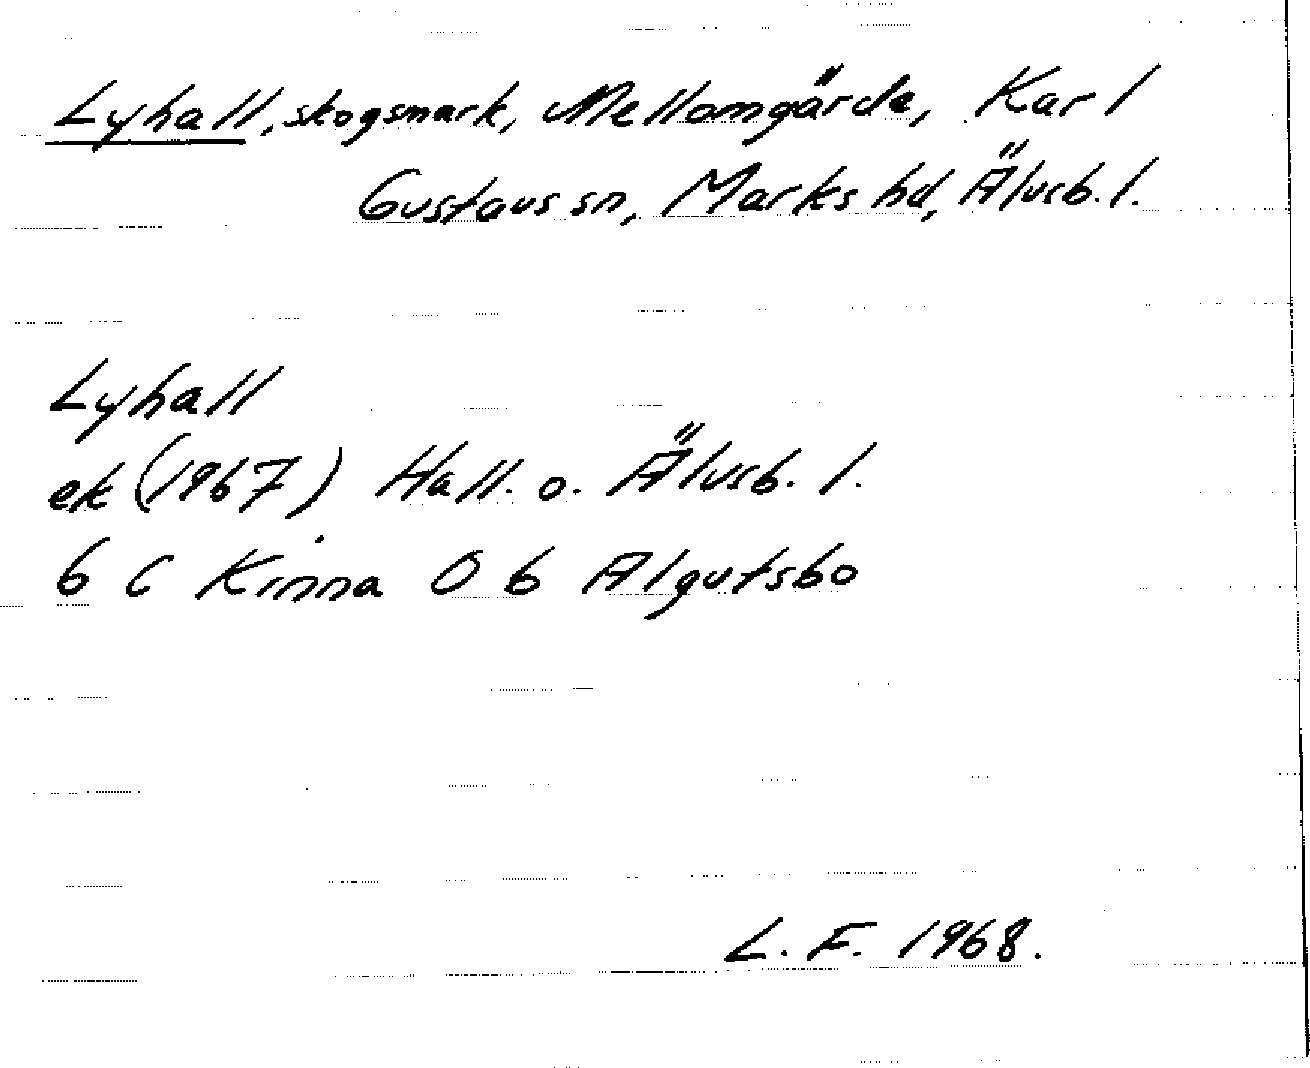 Lyhall, skogsmark, Mellomgärde, Karl
Gustavs sn, Marks hd, Älvsb. l.
Lyhall
ek (1967) Hall. o. Älvsb. l.
6 C Kinna 0 6 Algutsbo
L. F. 1968.